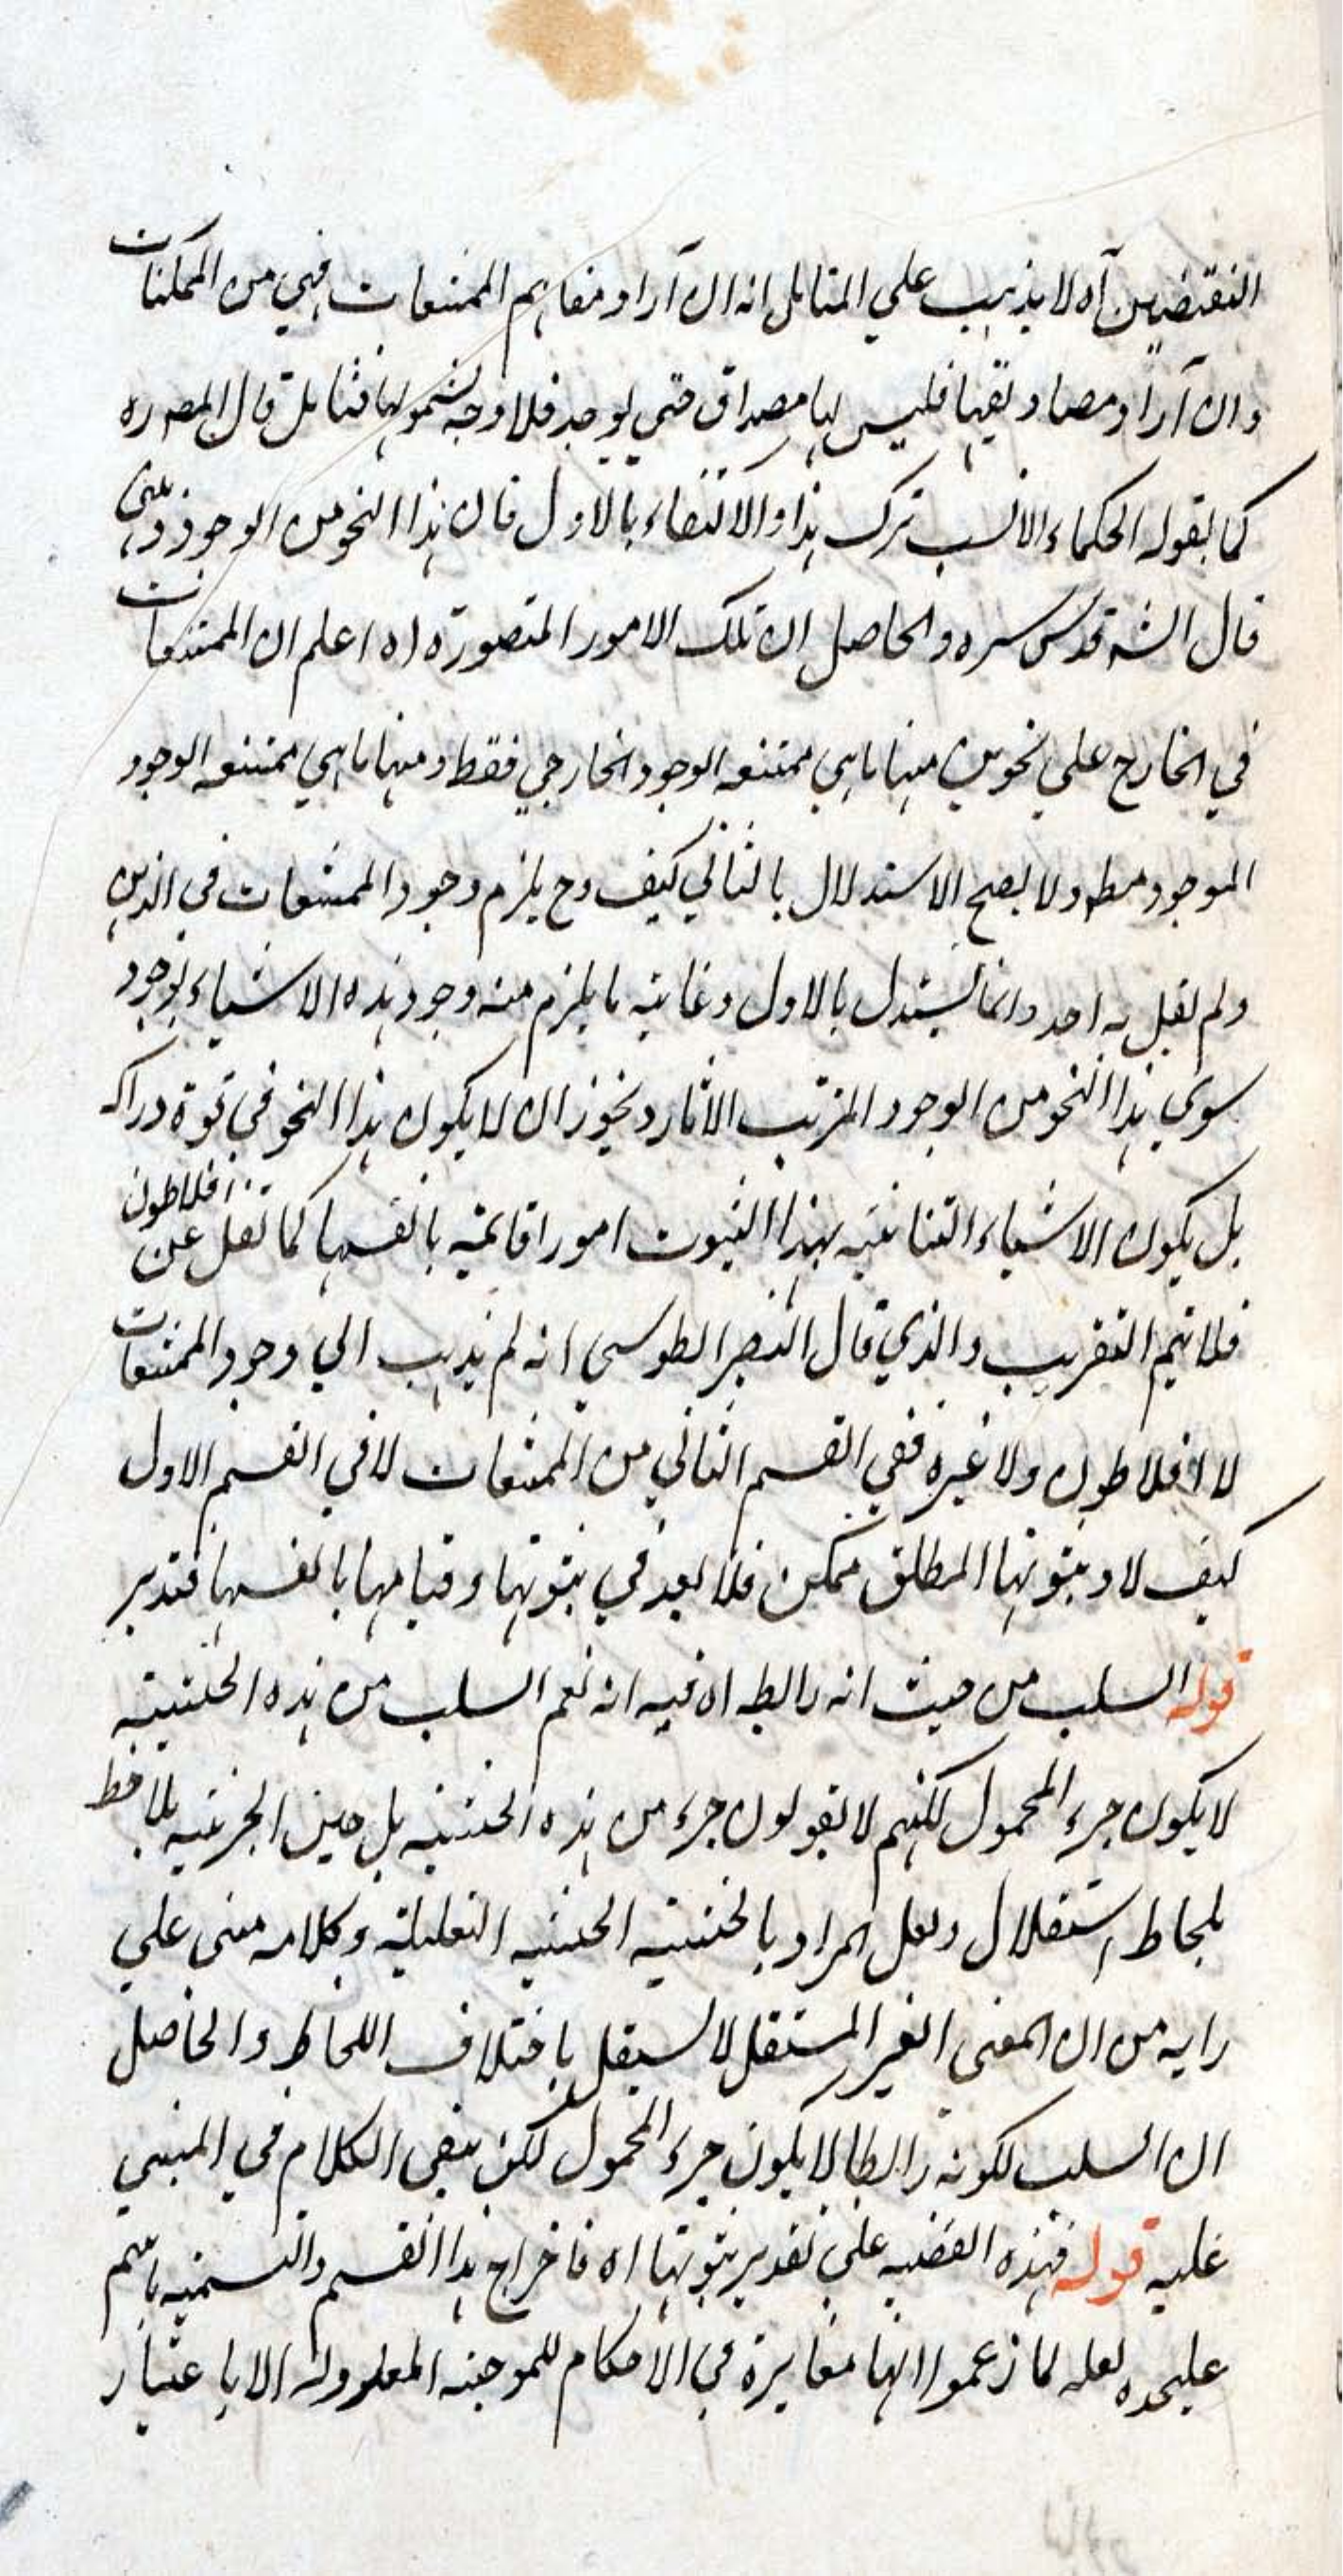 النقيضين آه لا يذهب علي المتامل انه ان آراد مفاهيم الممتنعات فهي من الممكنات
وان آراد مصاديقها فليس لها مصداق حتي يوجد فلا وجه لشمولها فتامل قال المصره
كما يقوله الحكماء الانسب ترك هذا والاكتفاء بالاول فان هذا النحو من الوجود ذهني
قال الشه قدس سره والحاصل ان تلك الامور المتصورة اه اعلم ان الممتنعات
في الخارج علي نحوين منها ما هي ممتنعه الوجود الخارجي فقط ومنها ما هي ممتنعه الوجود
الموجود مطه ولا يصح الاستدلال بالثاني كيف وح يلزم وجود الممتنعات في الذهن
ولم يقل به احد وانما يستدل بالاول وغايته ما يلزم منه وجود هذه الاشياء بوجود
سوي هذا النحو من الوجود المترتب الاثار ويجوز ان لا يكون هذا النحو في قوة دراكه
بل يكون الاشياء الثابتية بهذا الثبوت امورا قائمة بانفسها كما نقل عن افلاطون
فلا تيم التقريب والذي قال النصير الطوسي انه لم يذهب الي وجود الممتنعات
لا افلاطون ولا غيره ففي القسم الثاني من الممتنعات لا في القسم الاول
كيف لا وثبوتها المطلق ممكن فلا بعد في ثبوتها وقيامها بانفسها فتدبر
قوله السلب من حيث انه رابطه اه فيه انه نعم السلب من هذه الحيثيته
لا يكون جزء المحمول لكنهم لا يقولون جزء من هذه الحيثيته بل حين الجزئيه يلاحظ
بلحاظ استقلال ولعل المراد بالحيثيته الحيثيه التعليلية وكلامه مبنى علي
رايه من ان المعنى الغير المستقل لا يستقل باختلاف اللحاظ والحاصل
ان السلب لكونه رابطا لا يكون جزء المحمول لكن بقي الكلام في المبني
عليه قوله فهذه القضيه علي تقدير ثبوتها اه فاخراج هذا القسم والتسميه باسم
عليحده لعله لما زعموا انها مغايرة في الاحكام للموجبه المعدوله الا باعتبار